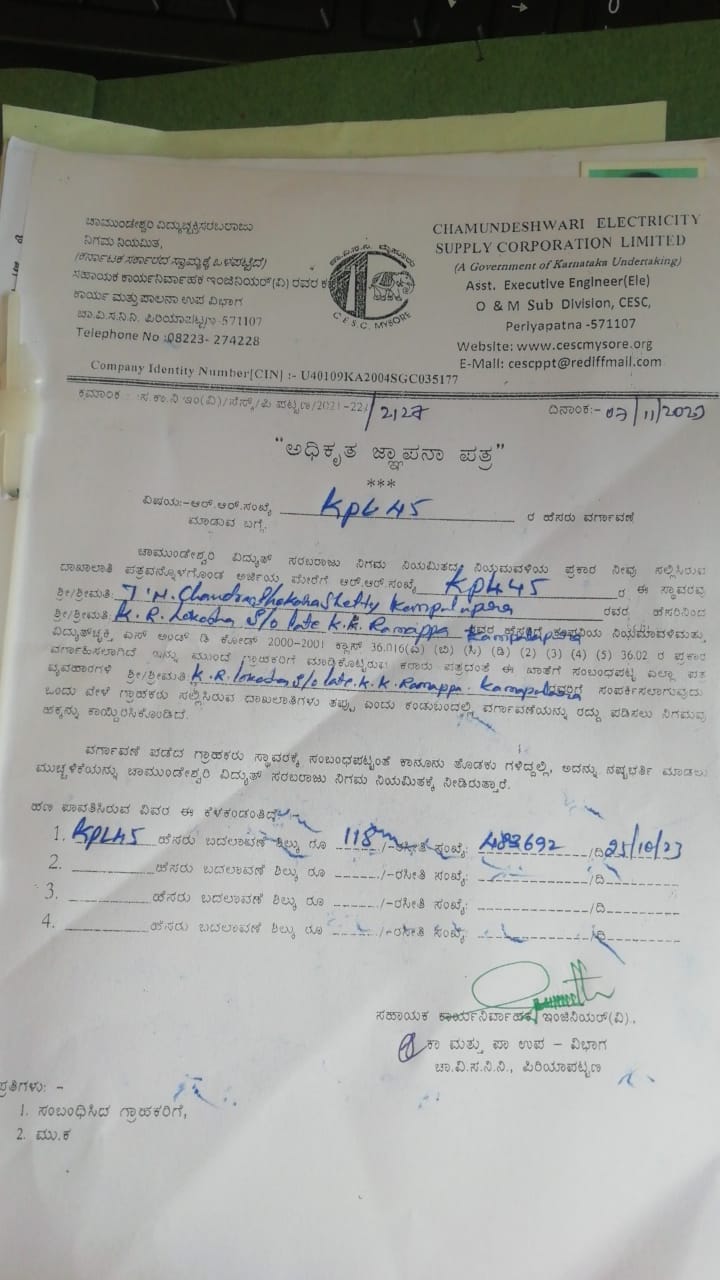 ಚಾಮುಂಡೇಶ್ವರಿ ವಿದ್ಯುಚ್ಛಕ್ತಿಸರಬರಾಜು
ನಿಗಮ ನಿಯಮಿತ,
(ಕರ್ನಾಟಕ ಸರ್ಕಾರದ ಸ್ವಾಮ್ಯಕ್ಕೆ ಒಳಪಟ್ಟಿದೆ)
ಸಹಾಯಕ ಕಾರ್ಯನಿರ್ವಾಹಕ ಇಂಜಿನಿಯರ್(ವಿ) ರವರ
ಕಾರ್ಯ ಮತ್ತು ಪಾಲನಾ ಉಪ ವಿಭಾಗ
ಚಾ.ವಿ.ಸ.ನಿ.ನಿ. ಪಿರಿಯಾಪಟ್ಟಣ-571107
Telephone No :08223- 274228
ಚಾ.ವಿ.ಸ.ನಿ. ಮೈಸೂರು
C.E.S.C. MYSORE
CHAMUNDESHWARI ELECTRICITY
SUPPLY CORPORATION LIMITED
(A Government of Karnataka Undertaking)
Asst. Executive Engineer(Ele)
O & M Sub Division, CESC,
Periyapatna -571107
Website: www.cescmysore.org
E-Mail: cescppt@rediffmail.com
Company Identity Number[CIN] :- U40109KA2004SGC035177
ಕ್ರಮಾಂಕ : ಸ.ಕಾ.ನಿ ಇಂ(ವಿ)/ಸೆಸ್ಕ್/ಪಿ.ಪಟ್ಟಣ/2021-22/ 2127 ದಿನಾಂಕ:- 07/11/2023
"ಅಧಿಕೃತ ಜ್ಞಾಪನಾ ಪತ್ರ"
***
ವಿಷಯ:-ಆರ್.ಆರ್.ಸಂಖ್ಯೆ KPL45 ರ ಹೆಸರು ವರ್ಗಾವಣೆ
ಮಾಡುವ ಬಗ್ಗೆ.
ಚಾಮುಂಡೇಶ್ವರಿ ವಿದ್ಯುತ್ ಸರಬರಾಜು ನಿಗಮ ನಿಯಮಿತದ ನಿಯಮವಳಿಯ ಪ್ರಕಾರ ನೀವು ಸಲ್ಲಿಸಿರುವ
ದಾಖಲಾತಿ ಪತ್ರವನ್ನೊಳಗೊಂಡ ಅರ್ಜಿಯ ಮೇರೆಗೆ ಆರ್.ಆರ್.ಸಂಖ್ಯೆ KPL45 ರ ಈ ಸ್ಥಾವರವು
ಶ್ರೀ/ಶ್ರೀಮತಿ: T.N. Chandrashekarashetty Kampalapura ರವರ ಹೆಸರಿನಿಂದ
ಶ್ರೀ/ಶ್ರೀಮತಿ: K.R. Lokesha S/o late K.K. Ramappa Kampalapura ರವರ ಹೆಸರಿಗೆ ಕಂಪನಿಯ ನಿಯಮಾವಳಿಮತ್ತು
ವಿದ್ಯುಚ್ಛಕ್ತಿ ಎಸ್ ಅಂಡ್ ಡಿ ಕೋಡ್ 2000-2001 ಕ್ಲಾಸ್ 36.016(ಎ) (ಬಿ) (ಸಿ) (ಡಿ) (2) (3) (4) (5) 36.02 ರ ಪ್ರಕಾರ
ವರ್ಗಾಹಿಸಲಾಗಿದೆ ಇನ್ನು ಮುಂದೆ ಗ್ರಾಹಕರಿಗೆ ಮಾಡಿಕೊಟ್ಟಿರುವ ಕರಾರು ಪತ್ರದಂತೆ ಈ ಖಾತೆಗೆ ಸಂಬಂಧಪಟ್ಟ ಎಲ್ಲಾ ಪತ್ರ
ವ್ಯವಹಾರಗಳಿ ಶ್ರೀ/ಶ್ರೀಮತಿ K.R. Lokesha S/o late K.K. Ramappa. Kampalapura ರವರಿಗೆ ಸಂಪರ್ಕಿಸಲಾಗುವುದು
ಒಂದು ವೇಳೆ ಗ್ರಾಹಕರು ಸಲ್ಲಿಸಿರುವ ದಾಖಲಾತಿಗಳು ತಪ್ಪು ಎಂದು ಕಂಡುಬಂದಲ್ಲಿ ವರ್ಗಾವಣೆಯನ್ನು ರದ್ದು ಪಡಿಸಲು ನಿಗಮವು
ಹಕ್ಕನ್ನು ಕಾಯ್ದಿರಿಸಿಕೊಂಡಿದೆ.
ವರ್ಗಾವಣೆ ಪಡೆದ ಗ್ರಾಹಕರು ಸ್ಥಾವರಕ್ಕೆ ಸಂಬಂಧಪಟ್ಟಂತೆ ಕಾನೂನು ತೊಡಕು ಗಳಿದ್ದಲ್ಲಿ, ಅದನ್ನು ನಷ್ಟಭರ್ತಿ ಮಾಡಲು
ಮುಚ್ಚಳಿಕೆಯನ್ನು ಚಾಮುಂಡೇಶ್ವರಿ ವಿದ್ಯುತ್ ಸರಬರಾಜು ನಿಗಮ ನಿಯಮಿತಕ್ಕೆ ನೀಡಿರುತ್ತಾರೆ.
ಹಣ ಪಾವತಿಸಿರುವ ವಿವರ ಈ ಕೆಳಕಂಡಂತಿದೆ
1. KPL45 ಹೆಸರು ಬದಲಾವಣೆ ಶಿಲ್ಕು ರೂ 118 /-ರಸೀತಿ ಸಂಖ್ಯೆ: 483692 /ದಿ 25/10/23
2. ಹೆಸರು ಬದಲಾವಣೆ ಶಿಲ್ಕು ರೂ /-ರಸೀತಿ ಸಂಖ್ಯೆ: /ದಿ
3. ಹೆಸರು ಬದಲಾವಣೆ ಶಿಲ್ಕು ರೂ /-ರಸೀತಿ ಸಂಖ್ಯೆ: /ದಿ
4. ಹೆಸರು ಬದಲಾವಣೆ ಶಿಲ್ಕು ರೂ /-ರಸೀತಿ ಸಂಖ್ಯೆ: /ದಿ
ಸಹಾಯಕ ಕಾರ್ಯನಿರ್ವಾಹಕ ಇಂಜಿನಿಯರ್(ವಿ).,
ಕಾ ಮತ್ತು ಪಾ ಉಪ - ವಿಭಾಗ
ಚಾ.ವಿ.ಸ.ನಿ.ನಿ., ಪಿರಿಯಾಪಟ್ಟಣ
ಪ್ರತಿಗಳು: -
1. ಸಂಬಂಧಿಸಿದ ಗ್ರಾಹಕರಿಗೆ,
2. ಮು.ಕ